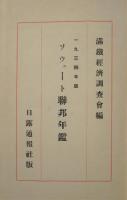 滿鐵經濟調査會編
一九三四年版
ソヴェート聯邦年鑑
日露通報社版